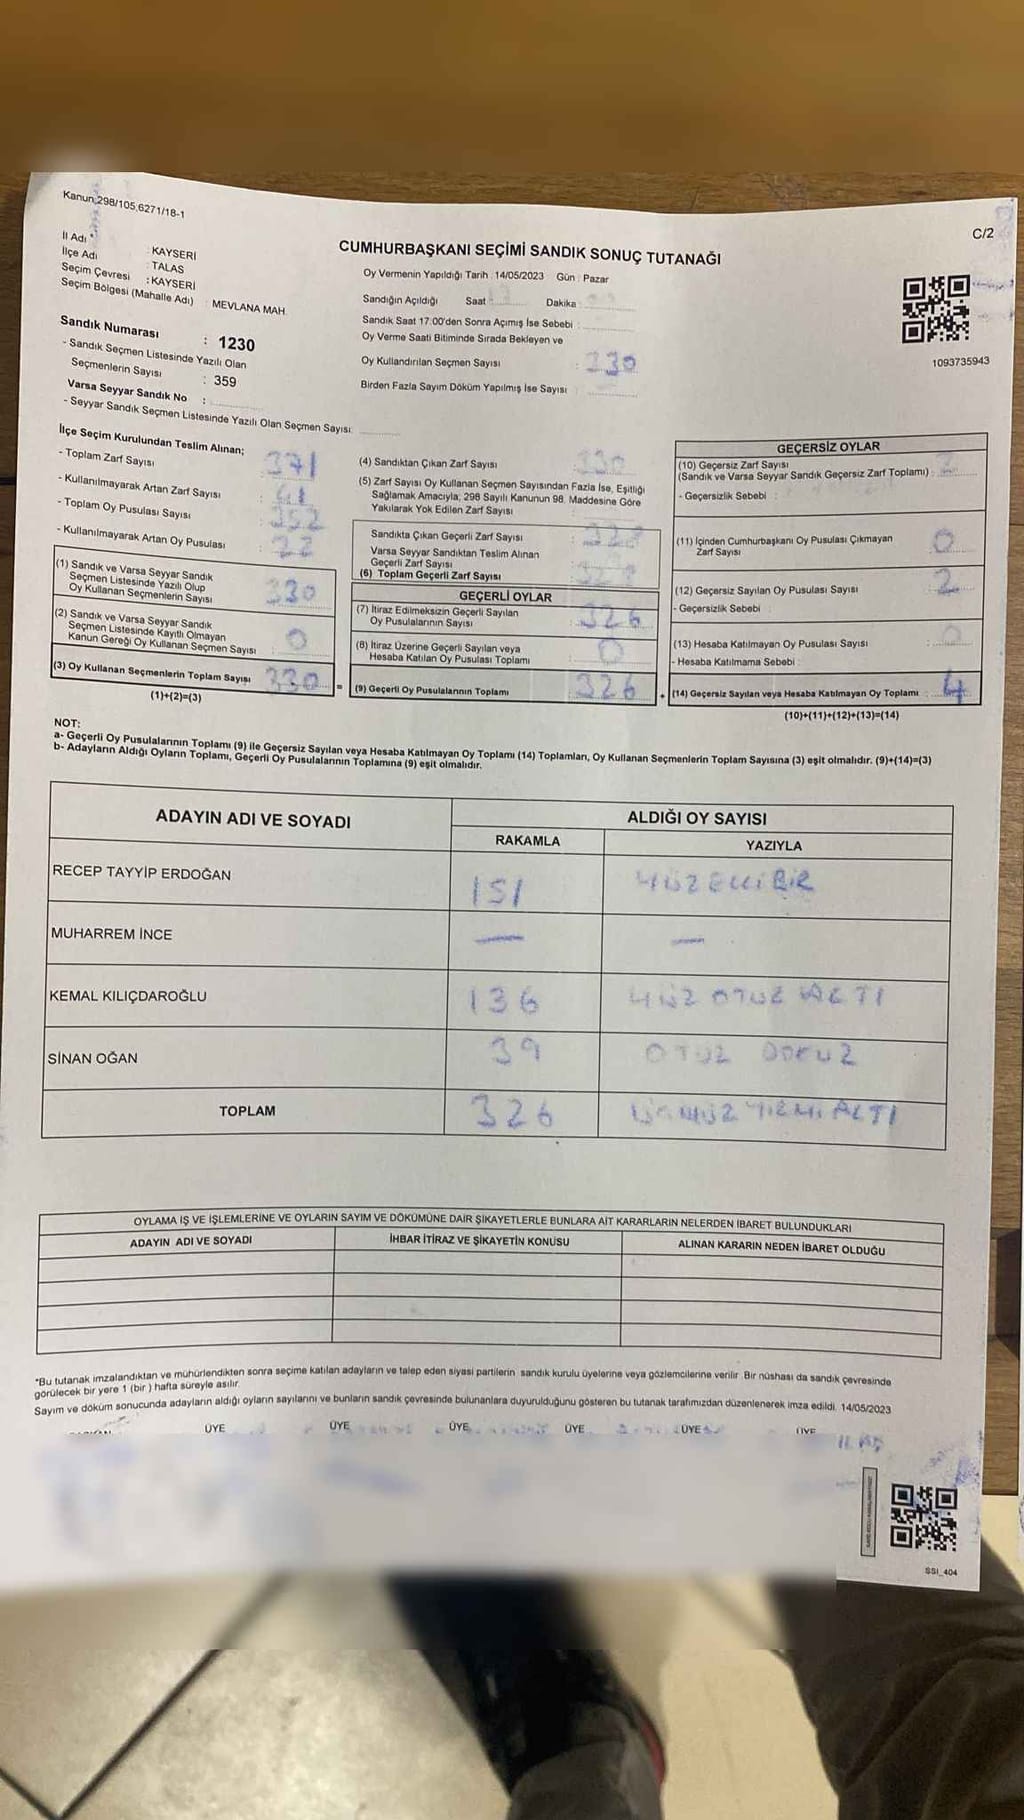 Kanun 298/105,6271/18-1
C/2
İl Adı : KAYSERİ
İlçe Adı : TALAS
Seçim Çevresi : KAYSERİ
Seçim Bölgesi (Mahalle Adı) : MEVLANA MAH.
CUMHURBAŞKANI SEÇİMİ SANDIK SONUÇ TUTANAĞI
Oy Vermenin Yapıldığı Tarih : 14/05/2023 Gün : Pazar
Sandığın Açıldığı Saat Dakika
Sandık Saat 17:00'den Sonra Açımış İse Sebebi :
Oy Verme Saati Bitiminde Sırada Bekleyen ve
Oy Kullandırılan Seçmen Sayısı : 330
Birden Fazla Sayım Döküm Yapılmış İse Sayısı :
1093735943
Sandık Numarası : 1230
- Sandık Seçmen Listesinde Yazılı Olan
Seçmenlerin Sayısı : 359
Varsa Seyyar Sandık No :
- Seyyar Sandık Seçmen Listesinde Yazılı Olan Seçmen Sayısı:
İlçe Seçim Kurulundan Teslim Alınan;
- Toplam Zarf Sayısı : 371
- Kullanılmayarak Artan Zarf Sayısı : 41
- Toplam Oy Pusulası Sayısı : 352
- Kullanılmayarak Artan Oy Pusulası : 22
(1) Sandık ve Varsa Seyyar Sandık
Seçmen Listesinde Yazılı Olup
Oy Kullanan Seçmenlerin Sayısı : 330
(2) Sandık ve Varsa Seyyar Sandık
Seçmen Listesinde Kayıtlı Olmayan
Kanun Gereği Oy Kullanan Seçmen Sayısı : 0
(3) Oy Kullanan Seçmenlerin Toplam Sayısı : 330 =
(1)+(2)=(3)
(4) Sandıktan Çıkan Zarf Sayısı : 330
(5) Zarf Sayısı Oy Kullanan Seçmen Sayısından Fazla İse, Eşitliği
Sağlamak Amacıyla; 298 Sayılı Kanunun 98. Maddesine Göre
Yakılarak Yok Edilen Zarf Sayısı :
Sandıkta Çıkan Geçerli Zarf Sayısı : 328
Varsa Seyyar Sandıktan Teslim Alınan
Geçerli Zarf Sayısı :
(6) Toplam Geçerli Zarf Sayısı : 328
GEÇERLİ OYLAR
(7) İtiraz Edilmeksizin Geçerli Sayılan
Oy Pusulalarının Sayısı : 326
(8) İtiraz Üzerine Geçerli Sayılan veya
Hesaba Katılan Oy Pusulası Toplamı : 0
(9) Geçerli Oy Pusulalarının Toplamı : 326 +
GEÇERSİZ OYLAR
(10) Geçersiz Zarf Sayısı
(Sandık ve Varsa Seyyar Sandık Geçersiz Zarf Toplamı) : 2
- Geçersizlik Sebebi :
(11) İçinden Cumhurbaşkanı Oy Pusulası Çıkmayan
Zarf Sayısı : 0
(12) Geçersiz Sayılan Oy Pusulası Sayısı : 2
- Geçersizlik Sebebi
(13) Hesaba Katılmayan Oy Pusulası Sayısı : 0
- Hesaba Katılmama Sebebi :
(14) Geçersiz Sayılan veya Hesaba Katılmayan Oy Toplamı : 4
(10)+(11)+(12)+(13)=(14)
NOT:
a- Geçerli Oy Pusulalarının Toplamı (9) ile Geçersiz Sayılan veya Hesaba Katılmayan Oy Toplamı (14) Toplamları, Oy Kullanan Seçmenlerin Toplam Sayısına (3) eşit olmalıdır. (9)+(14)=(3)
b- Adayların Aldığı Oyların Toplamı, Geçerli Oy Pusulalarının Toplamına (9) eşit olmalıdır.
ADAYIN ADI VE SOYADI ALDIĞI OY SAYISI
RAKAMLA YAZIYLA
RECEP TAYYİP ERDOĞAN 151 YÜZ ELLİ BİR
MUHARREM İNCE — —
KEMAL KILIÇDAROĞLU 136 YÜZ OTUZ ALTI
SİNAN OĞAN 39 OTUZ DOKUZ
TOPLAM 326 ÜÇ YÜZ YİRMİ ALTI
OYLAMA İŞ VE İŞLEMLERİNE VE OYLARIN SAYIM VE DÖKÜMÜNE DAİR ŞİKAYETLERLE BUNLARA AİT KARARLARIN NELERDEN İBARET BULUNDUKLARI
ADAYIN ADI VE SOYADI İHBAR İTİRAZ VE ŞİKAYETİN KONUSU ALINAN KARARIN NEDEN İBARET OLDUĞU
*Bu tutanak imzalandıktan ve mühürlendikten sonra seçime katılan adayların ve talep eden siyasi partilerin sandık kurulu üyelerine veya gözlemcilerine verilir. Bir nüshası da sandık çevresinde
görülecek bir yere 1 (bir ) hafta süreyle asılır.
Sayım ve döküm sonucunda adayların aldığı oyların sayılarını ve bunların sandık çevresinde bulunanlara duyurulduğunu gösteren bu tutanak tarafımızdan düzenlenerek imza edildi. 14/05/2023
ÜYE ÜYE ÜYE ÜYE ÜYE ÜYE
SSI_404